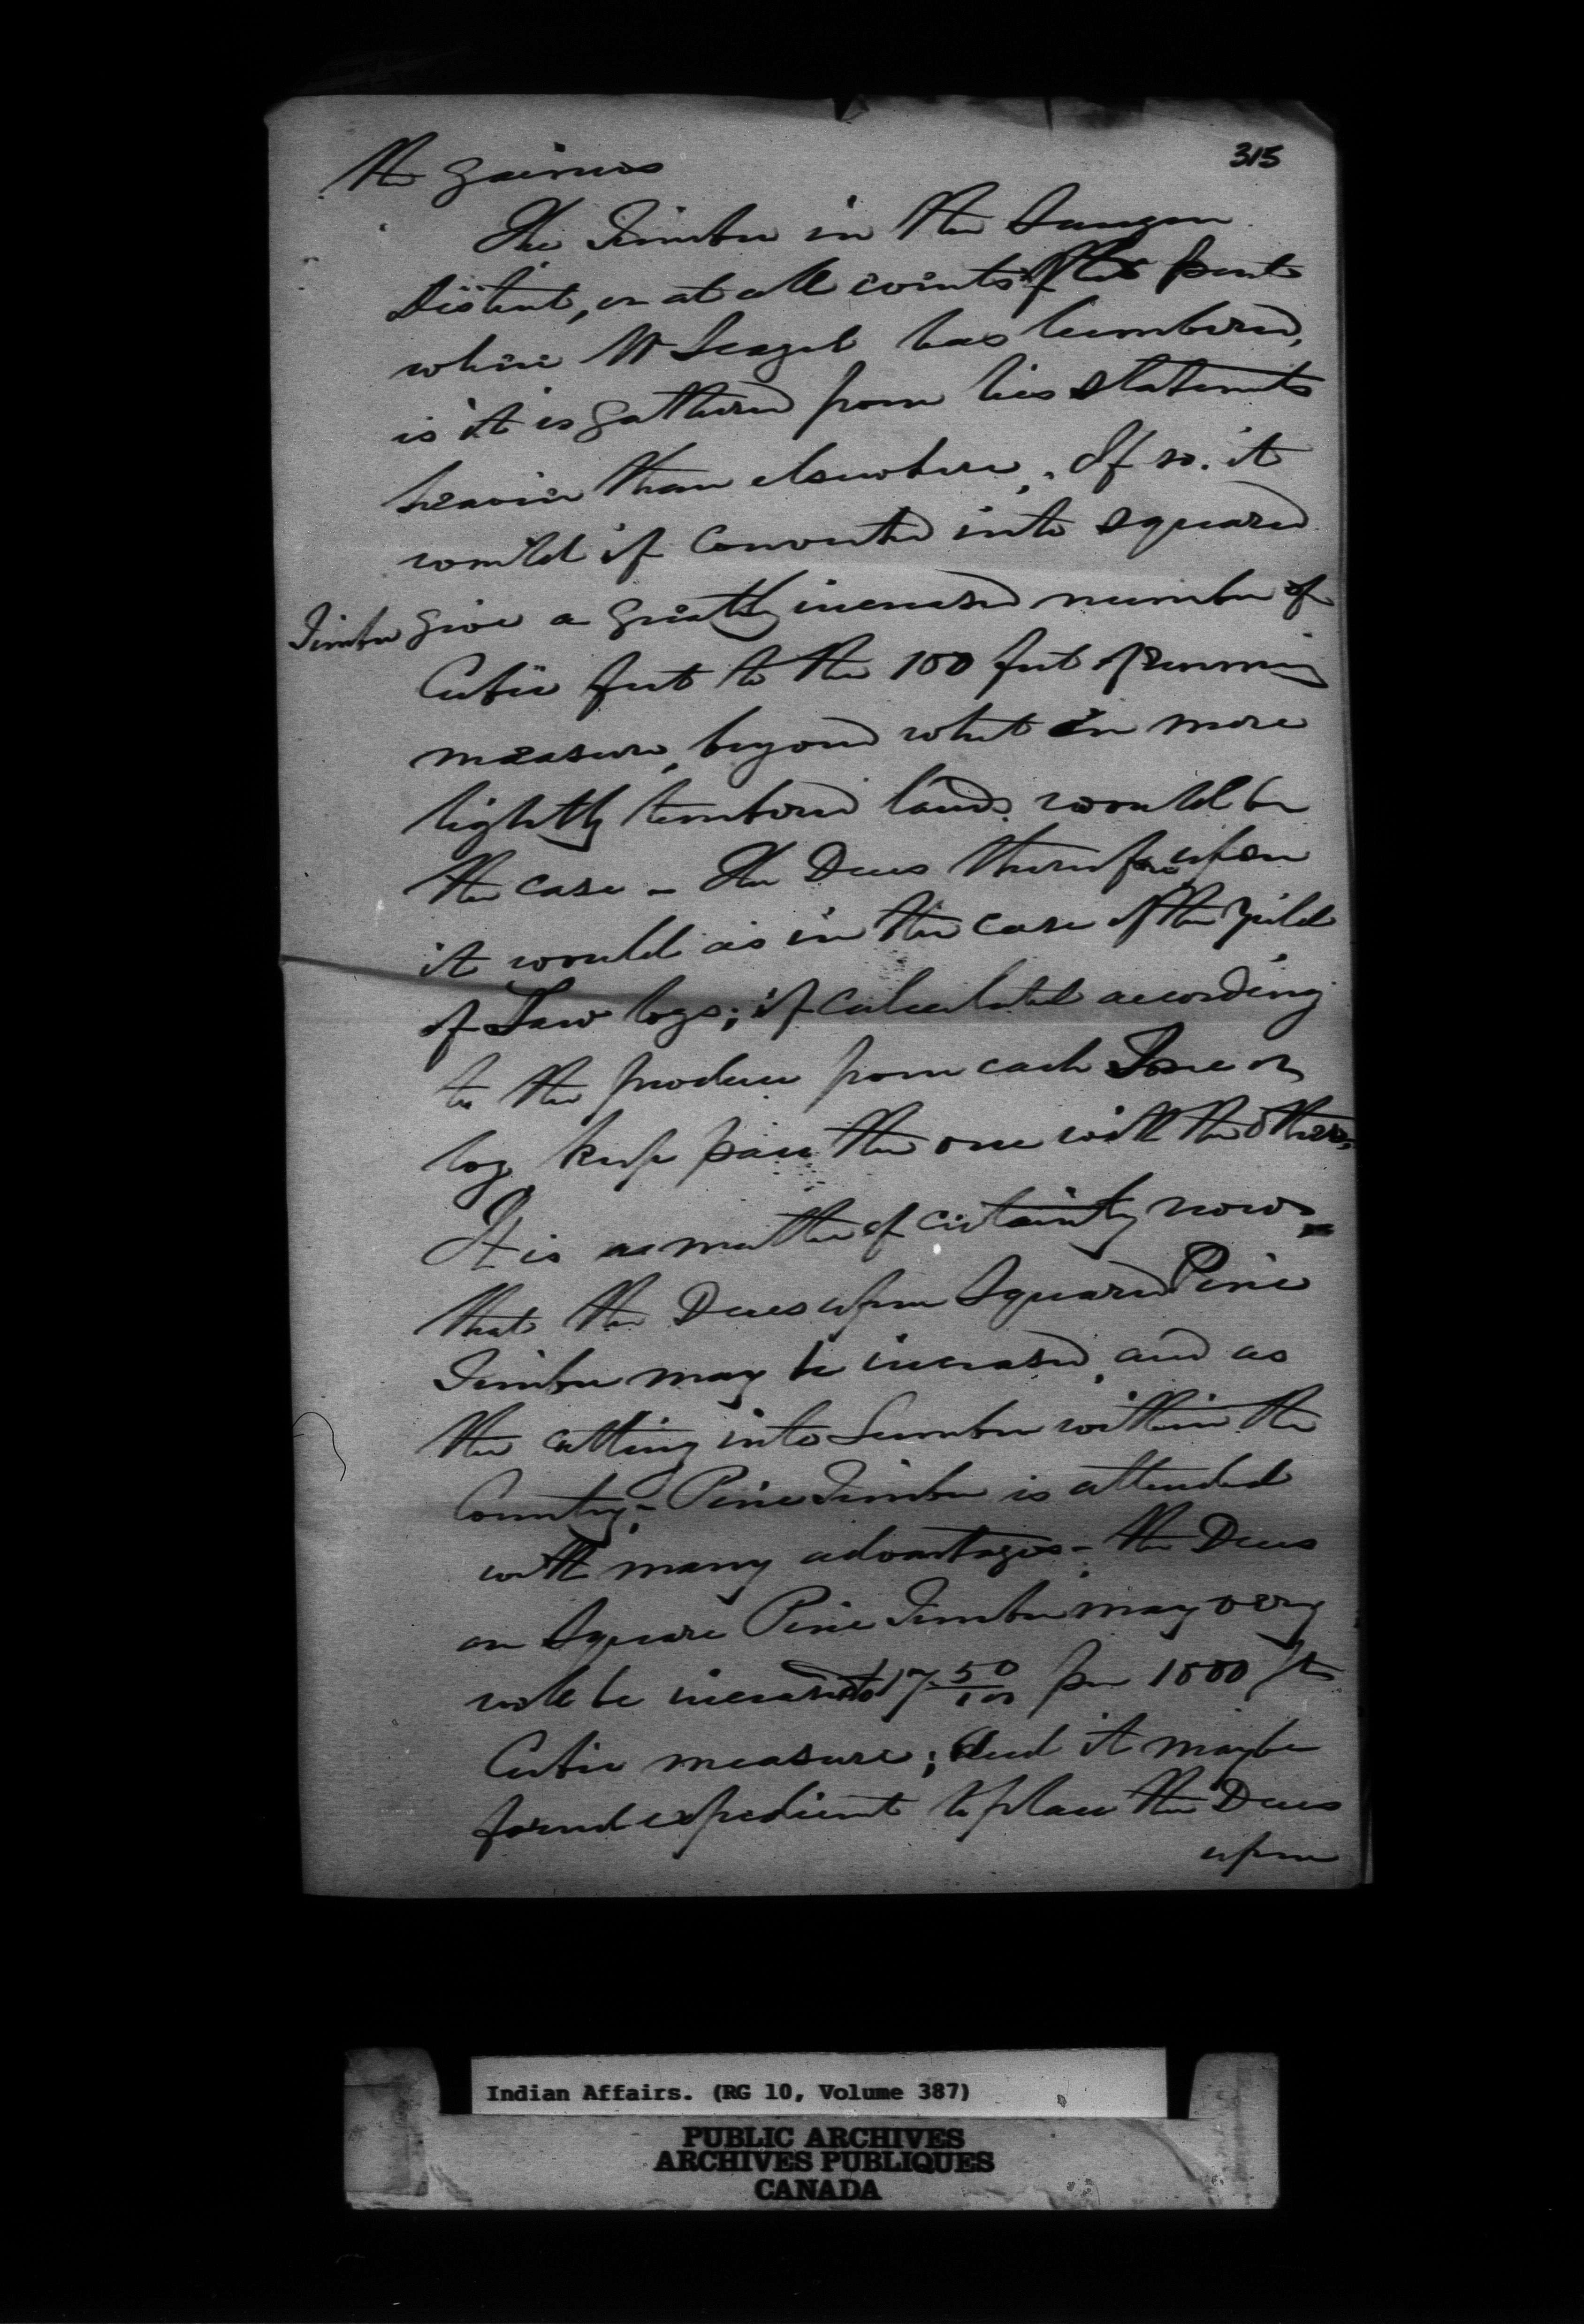 315
the gainers
The Timber in the Saugeen
District, or at all points of the part
where Mr Seagel has lumbered,
is it is gathered from his statements
heavier than elsewhere. If so. it
would if converted into squared
Timber give a greatly increased number of
Cubic feet to the 100 feet of running
measure, beyond what in more
lightly timbered lands would be
the case - The Dues therefore upon
it would as in the case of the yield
of Saw logs; if calculated according
to the produce from each Tree or
log keep pace the one with the other,
It is a matter of certainty now,
that the Dues upon Squared Pine
Timber may be increased, and as
the cutting into Lumber within the
Country - Pine Timber is attended
with many advantages - the Dues
on Square Pine Timber may very
well be increased to 17 50/100 per 1000 ft
Cubic measure; And it may be
found expedient to place the Dues
upon
Indian Affairs. (RG 10, Volume 387)
PUBLIC ARCHIVES
ARCHIVES PUBLIQUES
CANADA